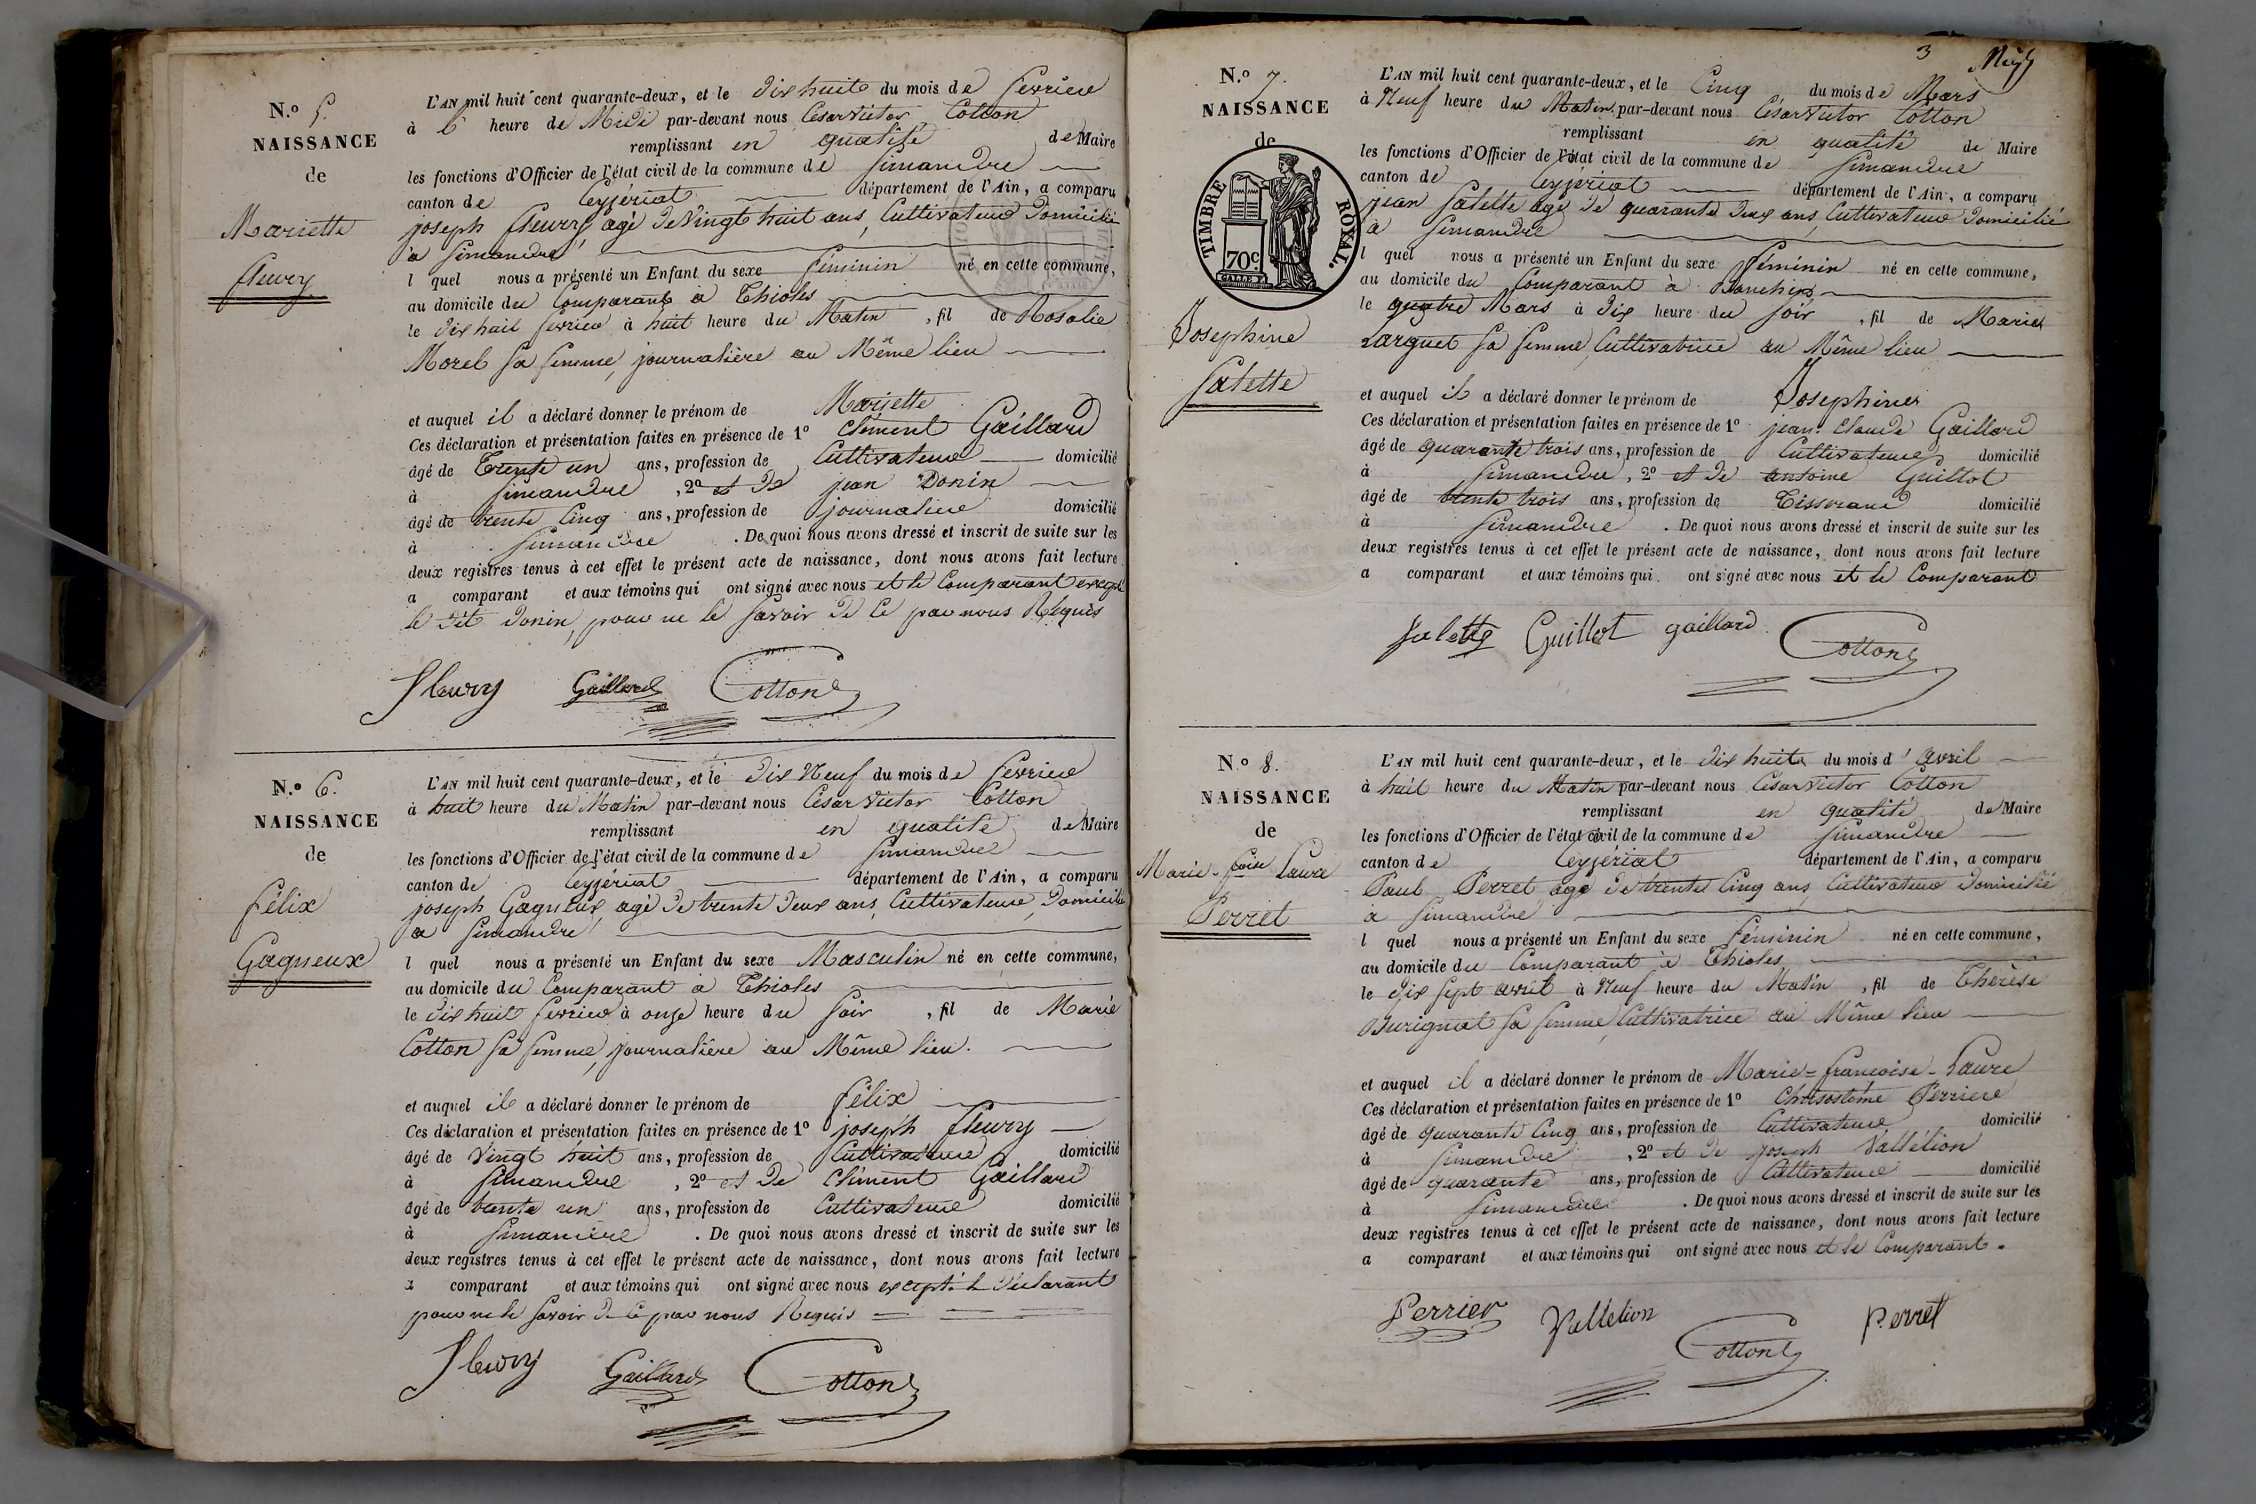 N.º 5.
NAISSANCE
de
Mariette
fleury
L'AN mil huit cent quarante-deux, et le dix huit du mois de fevrier
à heure de Midi par-devant nous César Victor Cotton
remplissant en qualité de Maire
les fonctions d'Officier de l'état civil de la commune de Simandre
canton de Ceyzériat département de l'Ain, a comparu
joseph fleury agé de Vingt huit ans, Cultivateur domicilié
à Simandre
l quel nous a présenté un Enfant du sexe féminin né en cette commune,
au domicile du Comparant à Thioles
le dix huit fevrier à huit heure du Matin, fil de Rosalie
Morel sa femme, journalière au Même lieu
et auquel il a déclaré donner le prénom de Mariette
Ces déclaration et présentation faites en présence de 1º Clément Gaillard
âgé de Trente un ans, profession de Cultivateur domicilié
à Simandre, 2º et de jean Donin
âgé de trente Cinq ans, profession de journalier domicilié
à Simandre. De quoi nous avons dressé et inscrit de suite sur les
deux registres tenus à cet effet le présent acte de naissance, dont nous avons fait lecture
a comparant et aux témoins qui ont signé avec nous et le Comparant excepté
le dit Donin, pour ne le savoir de ce par nous Requis
fleury Gaillard Cotton
N.º 6.
NAISSANCE
de
félix
Gagneux
L'AN mil huit cent quarante-deux, et le dix Neuf du mois de fevrier
à huit heure du Matin par-devant nous César Victor Cotton
remplissant en qualité de Maire
les fonctions d'Officier de l'état civil de la commune de Simandre
canton de Ceyzériat département de l'Ain, a comparu
joseph Gagneux, agé de trente deux ans, Cultivateur, Domicilié
a Simandre
l quel nous a présenté un Enfant du sexe Masculin né en cette commune,
au domicile du Comparant a Thioles
le dix huit fevrier à onze heure du soir, fil de Marie
Cotton sa femme, journalière au Même lieu.
et auquel il a déclaré donner le prénom de félix
Ces déclaration et présentation faites en présence de 1º joseph fleury
âgé de Vingt huit ans, profession de Cultivateur domicilié
à Simandre, 2º et de Clément Gaillard
âgé de trente un ans, profession de Cultivateur domicilié
à Simandre. De quoi nous avons dressé et inscrit de suite sur les
deux registres tenus à cet effet le présent acte de naissance, dont nous avons fait lecture
a comparant et aux témoins qui ont signé avec nous excepté le Déclarant
pour ne le savoir de ce par nous Requis
fleury Gaillard Cotton
3
N.º 7.
NAISSANCE
de
TIMBRE ROYAL.
70c.
Josephine
Salette
L'AN mil huit cent quarante-deux, et le Cinq du mois de Mars
à Neuf heure du Matin par-devant nous César Victor Cotton
remplissant en qualité de Maire
les fonctions d'Officier de l'état civil de la commune de Simandre
canton de Ceyzériat département de l'Ain, a comparu
jean Salette agé de quarante deux ans, Cultivateur domicilié
a Simandre
l quel nous a présenté un Enfant du sexe féminin né en cette commune,
au domicile du Comparant à
le quatre Mars à dix heure du soir, fil de Marie
Larguet sa femme, Cultivatrice au Même lieu
et auquel il a déclaré donner le prénom de Josephine
Ces déclaration et présentation faites en présence de 1º jean Claude Gaillard
âgé de quarante trois ans, profession de Cultivateur domicilié
à Simandre, 2º et de antoine Guillot
âgé de trente trois ans, profession de Tisserand domicilié
à Simandre. De quoi nous avons dressé et inscrit de suite sur les
deux registres tenus à cet effet le présent acte de naissance, dont nous avons fait lecture
a comparant et aux témoins qui ont signé avec nous et le Comparant
Salette Guillot gaillard Cotton
N.º 8.
NAISSANCE
de
Marie fcoise Laure
Perret
L'AN mil huit cent quarante-deux, et le dix huit du mois d'avril
à huit heure du Matin par-devant nous César Victor Cotton
remplissant en qualité de Maire
les fonctions d'Officier de l'état civil de la commune de Simandre
canton de Ceyzériat département de l'Ain, a comparu
Paul Perret agé de trente Cinq ans, Cultivateur Domicilié
à Simandre
l quel nous a présenté un Enfant du sexe féminin né en cette commune,
au domicile du Comparant à Thioles
le dix sept avril à Neuf heure du Matin, fil de Thérèse
Burignat sa femme, Cultivatrice au Même lieu
et auquel il a déclaré donner le prénom de Marie=francoise-Laure
Ces déclaration et présentation faites en présence de 1º Chrisostême Perrier
âgé de quarante Cinq ans, profession de Cultivateur domicilié
à Simandre, 2º et de joseph Vallélion
âgé de quarante ans, profession de Cultivateur domicilié
à Simandre. De quoi nous avons dressé et inscrit de suite sur les
deux registres tenus à cet effet le présent acte de naissance, dont nous avons fait lecture
a comparant et aux témoins qui ont signé avec nous et le Comparant.
Perrier Vallélion Cotton Perret